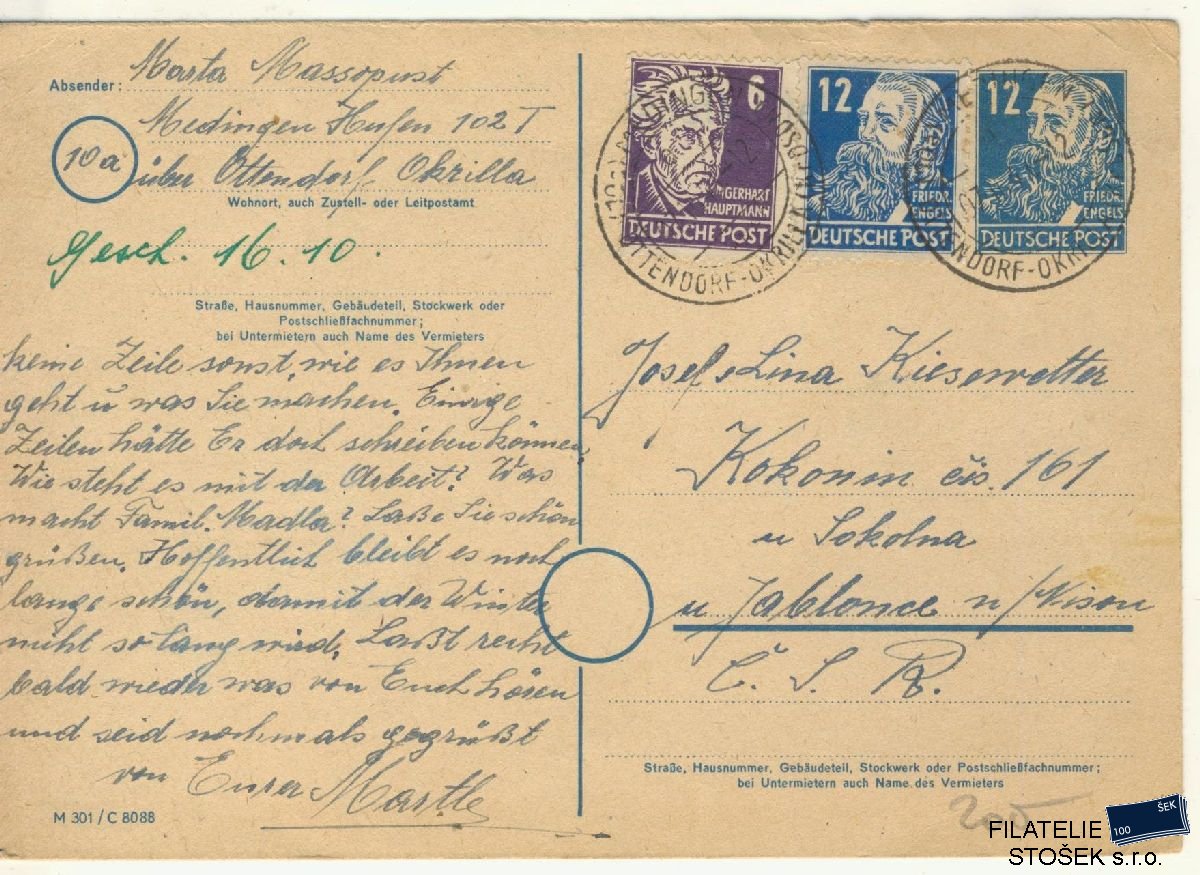 Absender: Marta Massopust
Medingen Hufen 102 T
10a
über Ottendorf Okrilla
Wohnort, auch Zustell- oder Leitpostamt
Gesch. 16.10.
Straße, Hausnummer, Gebäudeteil, Stockwerk oder
Postschließfachnummer;
bei Untermietern auch Name des Vermieters
keine Zeile sonst, wie es Ihnen
geht u was Sie machen. Einige
Zeilen hätte Er doch schreiben können.
Wie steht es mit der Arbeit? Was
macht Famil. Madla? Laße Sie schön
grüßen. Hoffentlich bleibt es noch
lange schön, damit der Winter
nicht so lang wird. Laßt recht
bald wieder was von Euch hören
und seid nochmals gegrüßt
von Eurer Martl
M 301 / C 8088
6
GERHART
HAUPTMANN
DEUTSCHE POST
12
FRIEDR.
ENGELS
DEUTSCHE POST
12
FRIEDR.
ENGELS
DEUTSCHE POST
OTTENDORF-OKRILLA
TENDORF-OKRI
Josef u Lina Kiesewetter
Kokonin čís. 161
u Sokolna
u Jablonce n/Nisou
Č. S. R.
Straße, Hausnummer, Gebäudeteil, Stockwerk oder Postschließfachnummer;
bei Untermietern auch Name des Vermieters
200
FILATELIE
STOŠEK s.r.o.
100 ŠEK